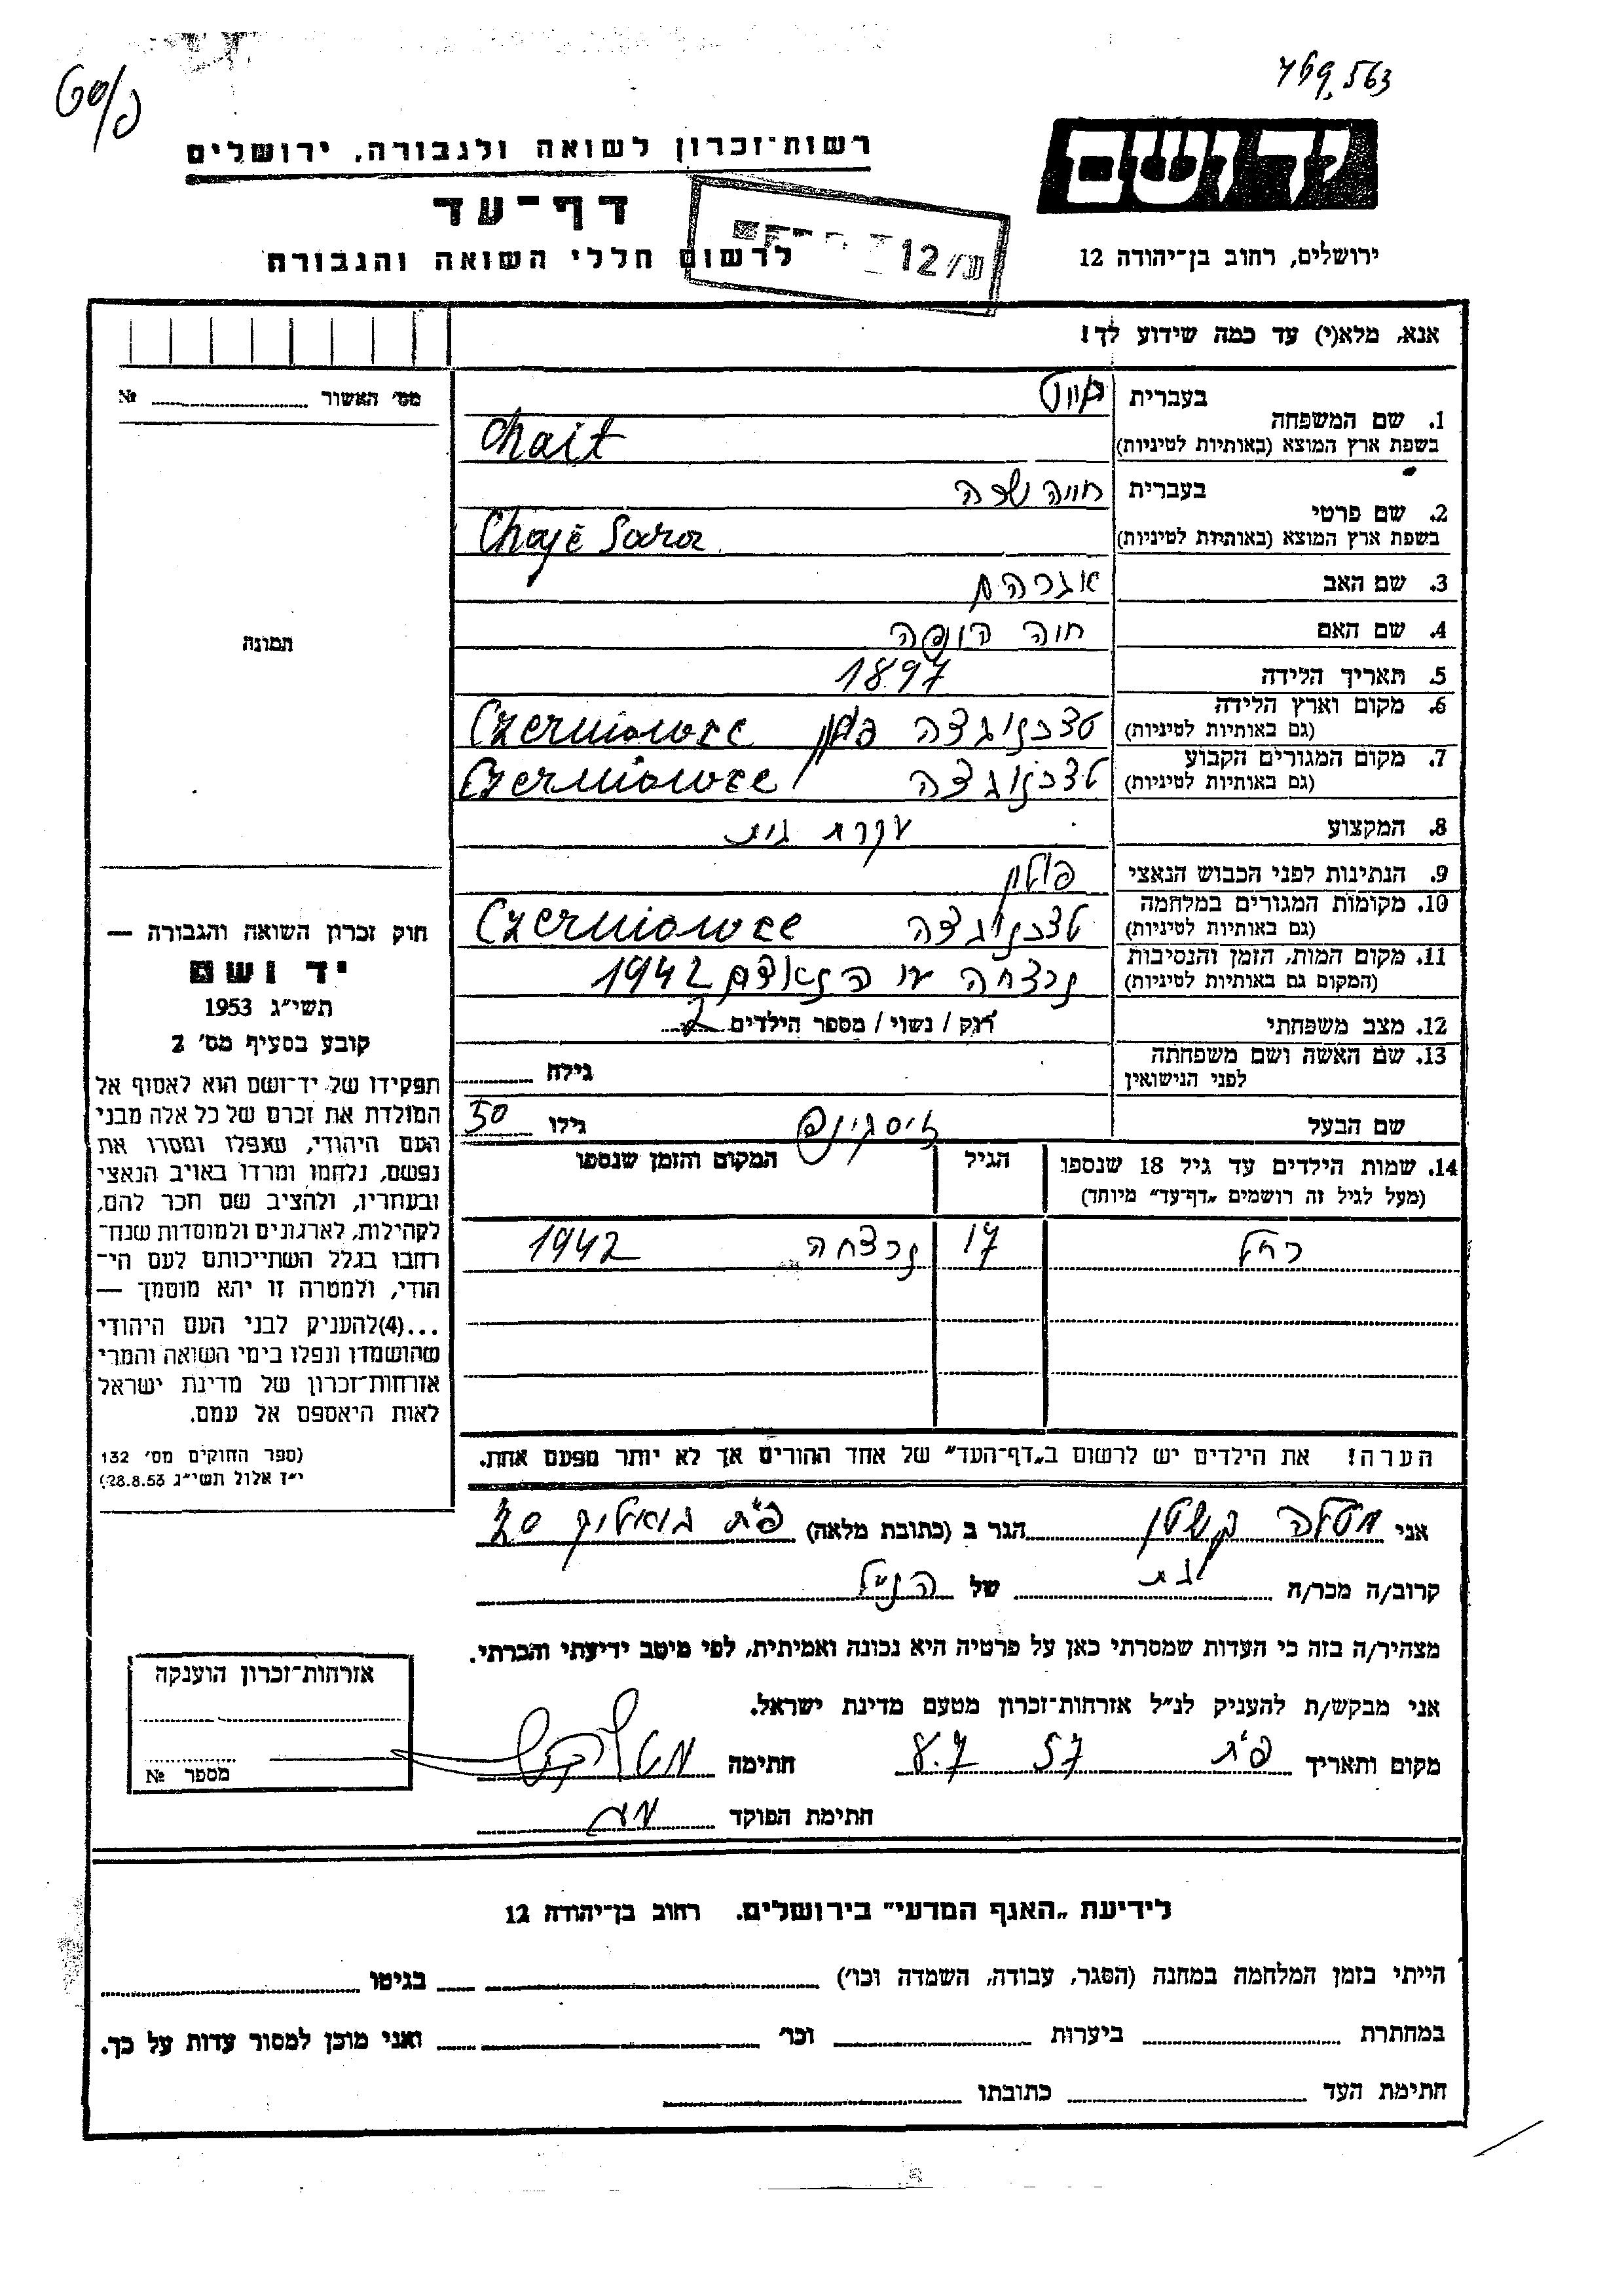 769,563
יד ושם
רשות־זכרון לשואה ולגבורה, ירושלים
דף־עד
לרשום חללי השואה והגבורה
ירושלים, רחוב בן־יהודה 12
12
אנא, מלא(י) עד כמה שידוע לך!
מס' האשור № 
1. שם המשפחה
בעברית
בשפת ארץ המוצא (באותיות לטיניות) Chait
2. שם פרטי
בעברית חייה שרה
בשפת ארץ המוצא (באותיות לטיניות) Chaje Sara
3. שם האב אברהם
4. שם האם חוה
5. תאריך הלידה 1897
6. מקום וארץ הלידה
(גם באותיות לטיניות) פולין Czerniowce
7. מקום המגורים הקבוע
(גם באותיות לטיניות) Czerniowce
8. המקצוע עקרת בית
9. הנתינות לפני הכבוש הנאצי פולין
10. מקומות המגורים במלחמה
(גם באותיות לטיניות) Czerniowce
11. מקום המות, הזמן והנסיבות
(המקום גם באותיות לטיניות) נרצחה ע"י הנאצים 1942
12. מצב משפחתי רוק / נשוי / מספר הילדים 2
13. שם האשה ושם משפחתה
לפני הנישואין גילה
שם הבעל גילו 50
14. שמות הילדים עד גיל 18 שנספו
(מעל לגיל זה רושמים „דף־עד” מיוחד)
הגיל
המקום והזמן שנספו
רחל 17 נרצחה 1942
הערה! את הילדים יש לרשום ב„דף־העד” של אחד ההורים אך לא יותר מפעם אחת.
תמונה
חוק זכרון השואה והגבורה —
יד ושם
תשי״ג 1953
קובע בסעיף מס' 2
תפקידו של יד־ושם הוא לאסוף אל
המולדת את זכרם של כל אלה מבני
העם היהודי, שנפלו ומסרו את
נפשם, נלחמו ומרדו באויב הנאצי
ובעוזריו, ולהציב שם וזכר להם,
לקהילות, לארגונים ולמוסדות שנח־
רבו בגלל השתייכותם לעם הי־
הודי, ולמטרה זו יהא מוסמך —
...(4) להעניק לבני העם היהודי
שהושמדו ונפלו בימי השואה והמרי
אזרחות־זכרון של מדינת ישראל
לאות היאספם אל עמם.
(ספר החוקים מס' 132
י״ז אלול תשי״ג 28.8.53)
אני הגר ב (כתובת מלאה) פ"ת 30
קרוב/ה מכר/ה בת של הנ"ל
מצהיר/ה בזה כי העדות שמסרתי כאן על פרטיה היא נכונה ואמיתית, לפי מיטב ידיעתי והכרתי.
אני מבקש/ת להעניק לנ״ל אזרחות־זכרון מטעם מדינת ישראל.
מקום ותאריך פ"ת 8.7 57 חתימה
חתימת הפוקד
אזרחות־זכרון הוענקה
מספר №
לידיעת „האגף המדעי” בירושלים. רחוב בן־יהודה 12
הייתי בזמן המלחמה במחנה (הסגר, עבודה, השמדה וכו') בגיטו
במחתרת ביערות וכו' ואני מוכן למסור עדות על כך.
חתימת העד כתובתו